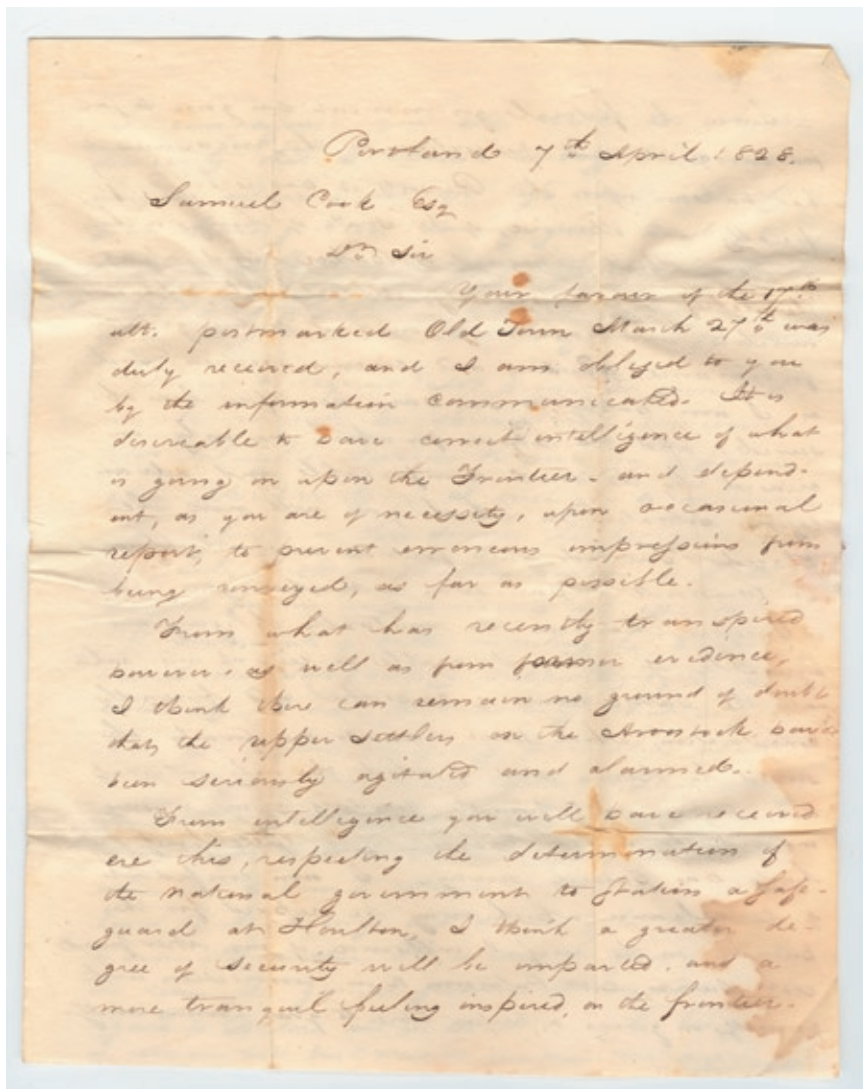 Portland 7th April 1828.
Samuel Cook Esq
Dr Sir
Your favour of the 17th
ult. postmarked Old Town March 27th was
duly received, and I am obliged to you
by the information communicated. It is
desireable to have correct intelligence of what
is going on upon the Frontier. and depend-
ent, as you are of necessity, upon occasional
reports, to prevent erroneous impressions from
being conveyed, as far as possible.
From what has recently transpired
however, as well as from former evidence,
I think there can remain no ground of doubt
that the upper settlers on the Aroostook have
been seriously agitated and alarmed.
From intelligence you will have received
ere this, respecting the determination of
the national government to station a safe-
guard at Houlton, I think a greater de-
gree of security will be imparted. and a
more tranquil feeling inspired, on the frontier.